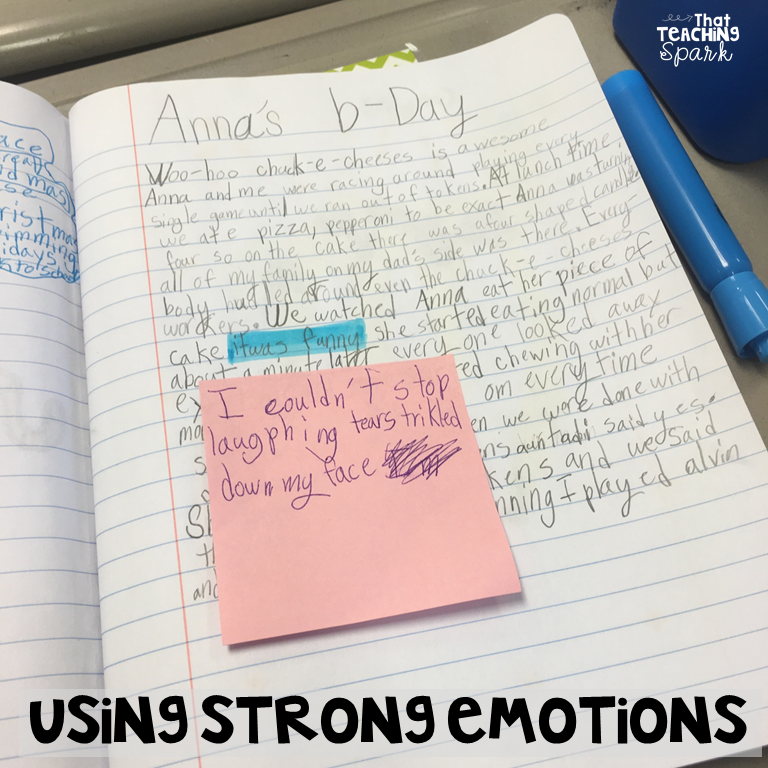 That
TEACHING
Spark
Anna's b-Day
Woo-hoo chuck-e-cheeses is awesome
Anna and me were racing around playing every
single game until we ran out of tokens. At lunch time
we ate pizza, pepperoni to be exact Anna was turning
four so on the cake there was a four shaped candle
all of my family on my dad's side was there. Every-
body hudled around even the chuck-e-cheeses
workers. We watched Anna eat her piece of
cake it was funny she started eating normal but
about a minute later every one looked away
ed chewing with her
om every time
en we were done with
said yes.
kens and we said
nning I played alvin
th
and
I couldn't stop
laugphing tears trikled
down my face
ace
reak
d mas
se
rist ma
imming
idays
USING STRONG EMOTIONS